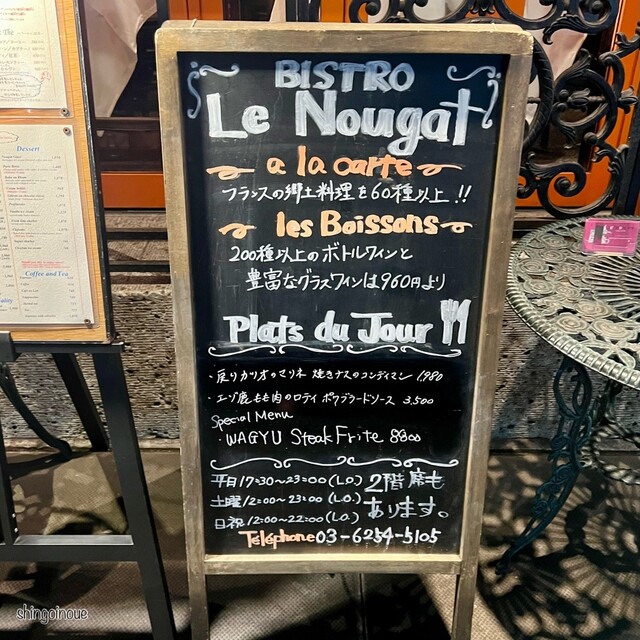 BISTRO
Le Nougat
a la carte
フランスの郷土料理を60種以上!!
les Boissons
200種以上のボトルワインと
豊富なグラスワインは960円より
Plats du Jour
・戻りカツオのマリネ 焼きナスのコンディマン 1,980
・エゾ鹿もも肉のロティ ポワブラードソース 3,500
Special Menu
・WAGYU Steak Frite 8800
平日17:30~23:00(L.O.)
土曜12:00~23:00(L.O.)
日祝12:00~22:00(L.O.)
2階席も
あります。
Téléphone 03-6254-5105
Dessert
Coffee and Tea
shingoinoue